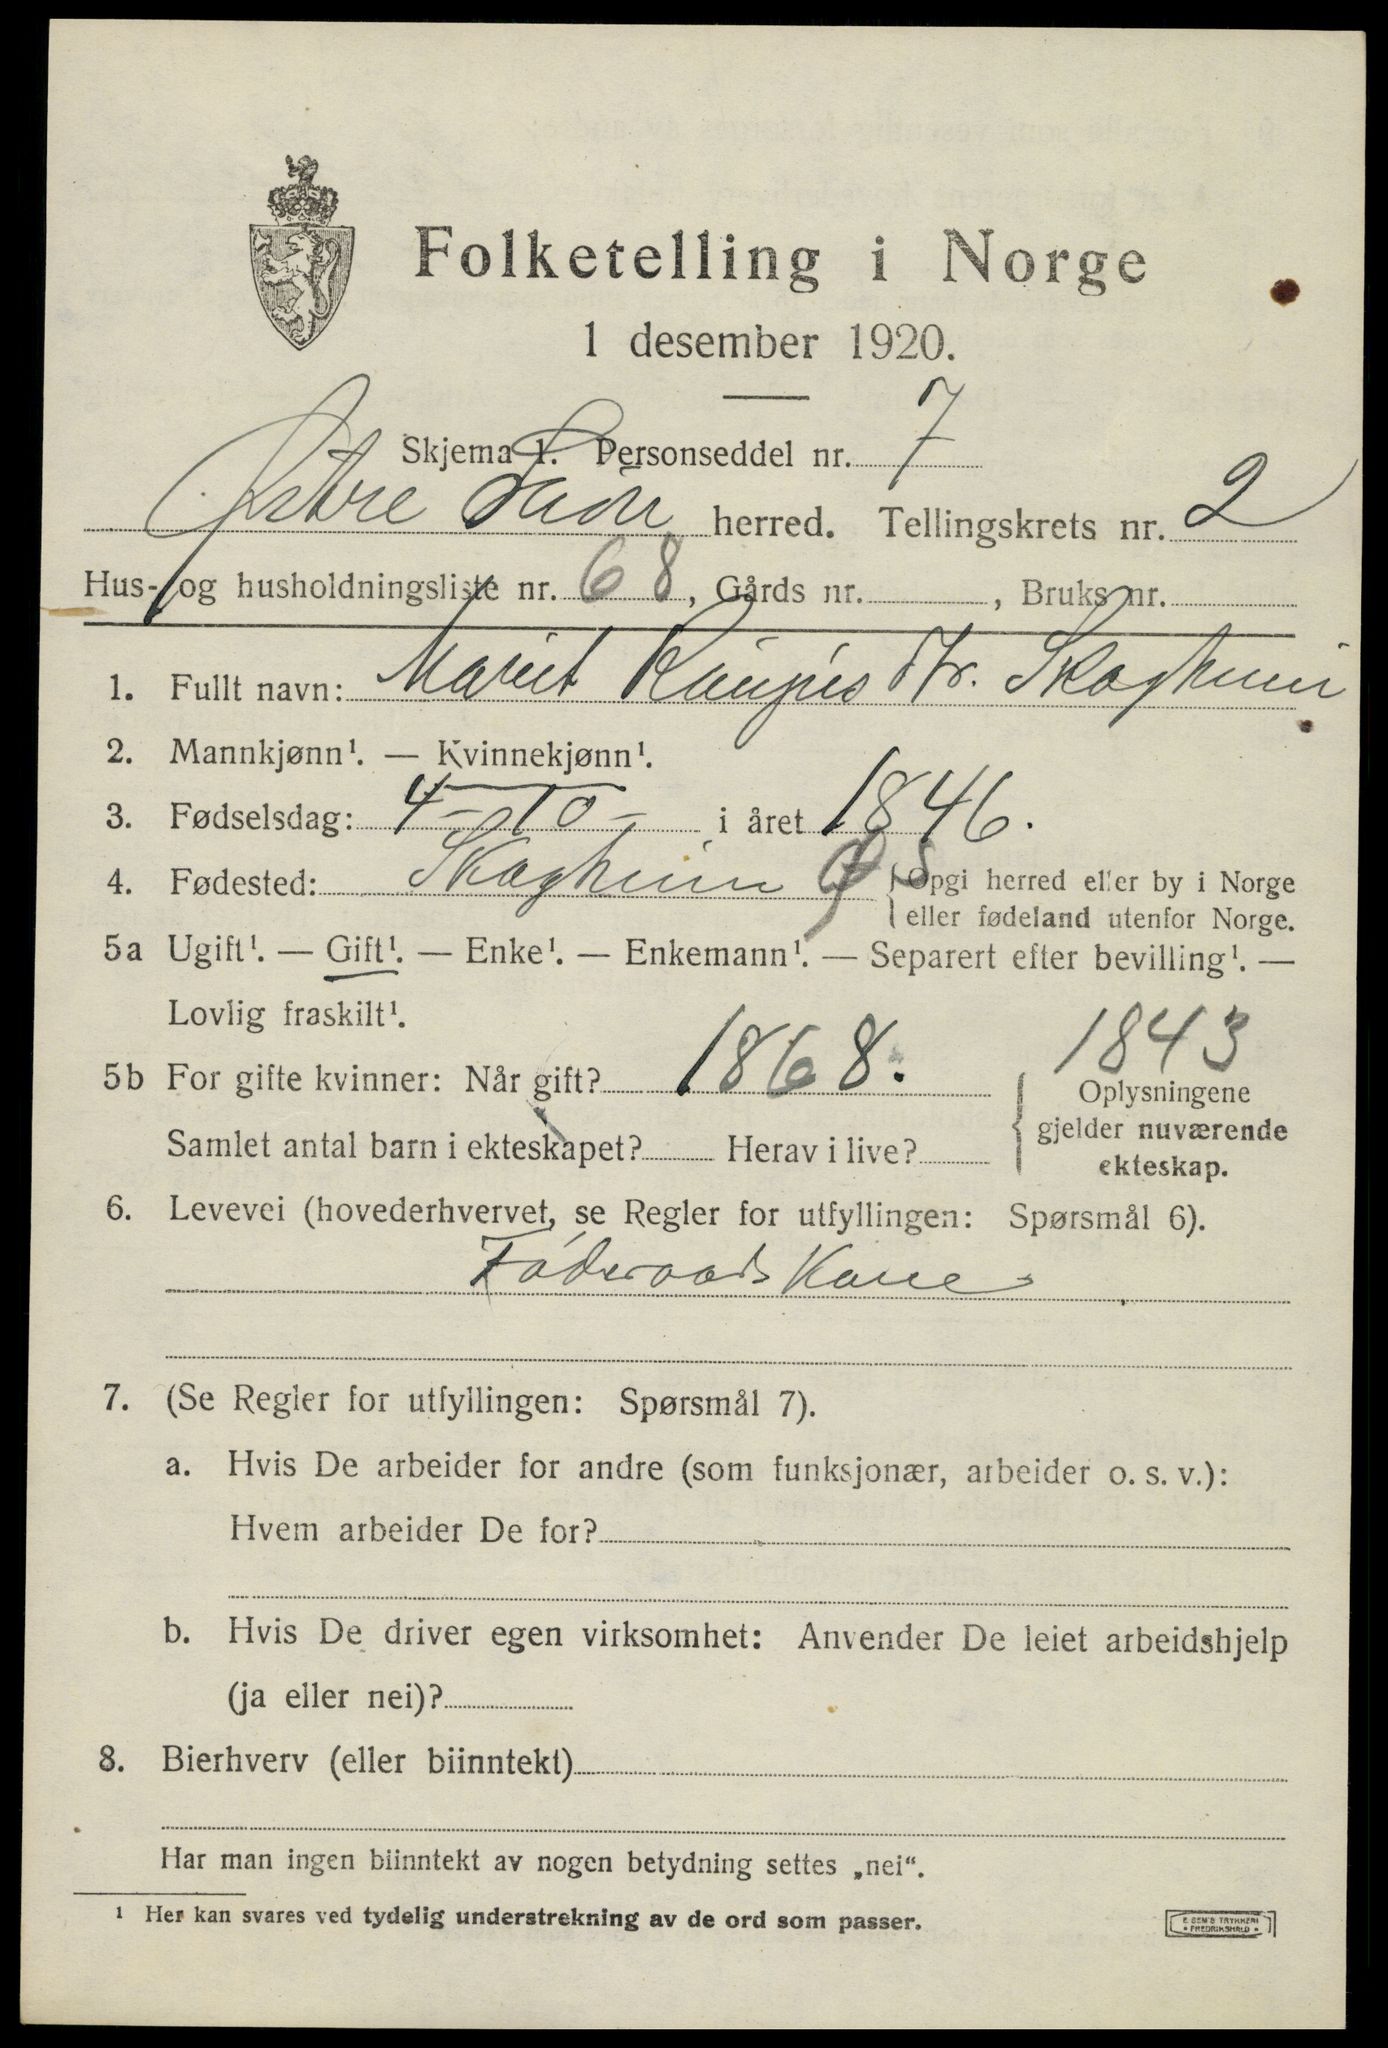 Folketelling i Norge
1 desember 1920.
Skjema 1. Personseddel nr. 7
Østre Slidre herred. Tellingskrets nr. 2
Hus- og husholdningsliste nr. 68, Gårds nr. , Bruks nr.
1. Fullt navn: Marit dtr. Skogheim
2. Mannkjønn¹. — Kvinnekjønn¹.
3. Fødselsdag: 4-10- i året 1846.
4. Fødested: Skogheim ØS {Opgi herred eller by i Norge
eller fødeland utenfor Norge.
5a Ugift¹. — Gift¹. — Enke¹. — Enkemann¹. — Separert efter bevilling¹. —
Lovlig fraskilt¹.
1843
5b For gifte kvinner: Når gift? 1868. Oplysningene
gjelder nuværende
ekteskap.
Samlet antal barn i ekteskapet? Herav i live?
6. Levevei (hovederhvervet, se Regler for utfyllingen: Spørsmål 6).
Föderaads Kone
7. (Se Regler for utfyllingen: Spørsmål 7).
a. Hvis De arbeider for andre (som funksjonær, arbeider o. s. v.):
Hvem arbeider De for?
b. Hvis De driver egen virksomhet: Anvender De leiet arbeidshjelp
(ja eller nei)?
8. Bierhverv (eller biinntekt)
Har man ingen biinntekt av nogen betydning settes „nei“.
¹ Her kan svares ved tydelig understrekning av de ord som passer.
E. SEM'S TRYKKERI
• FREDRIKSHALD •